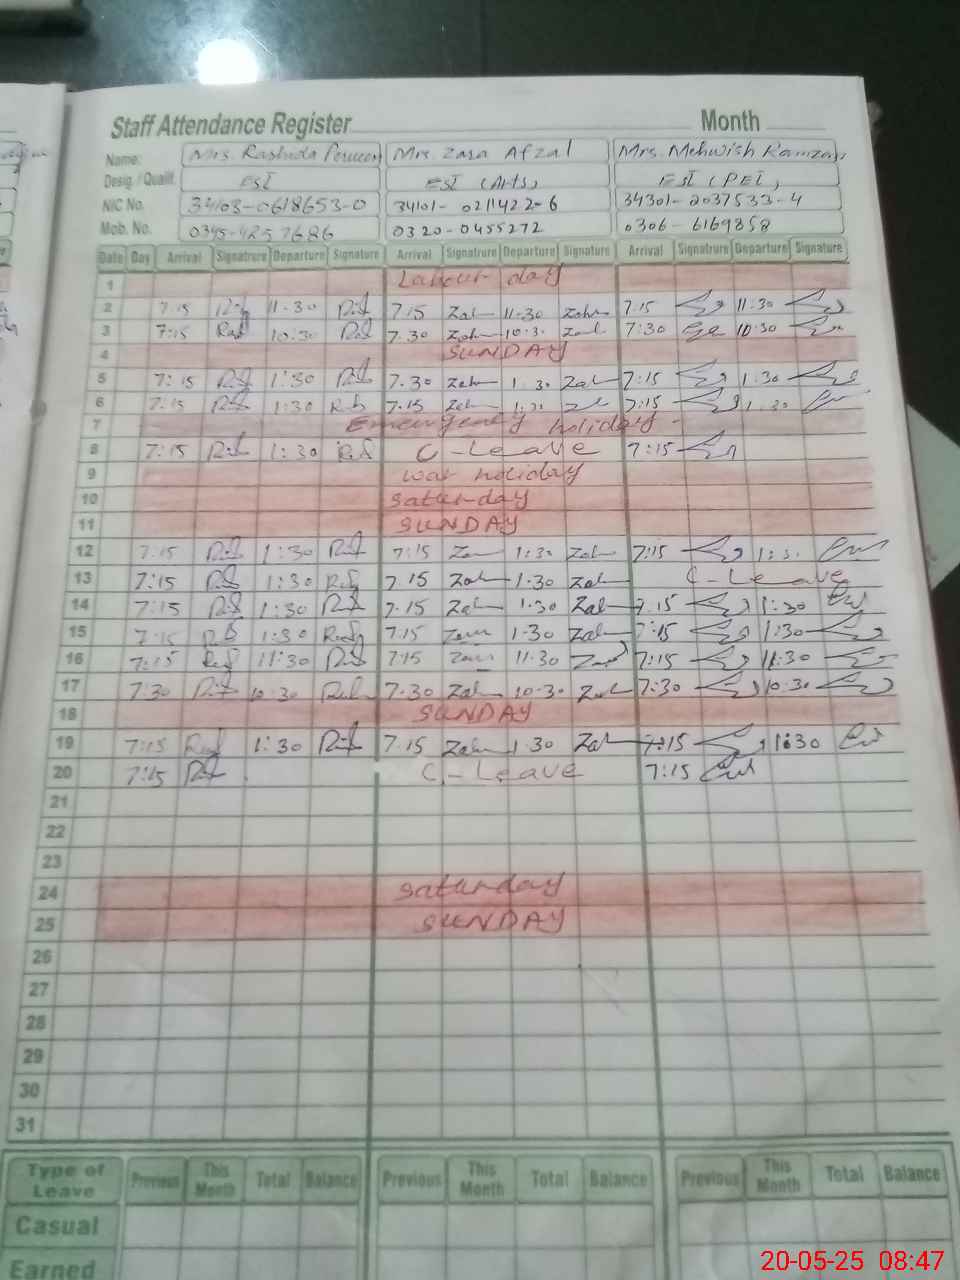 Staff Attendance Register Month
Name: Mrs. Rashida Perveen Mrs. Zara Afzal Mrs. Mehwish Ramzan
Desig. / Qualif. EST EST (Arts) EST (PET)
NIC No. 34103-0618653-0 34101-0211422-6 34301-2037533-4
Mob. No. 0345-4257686 0320-0455272 0306-6169858
Date Day Arrival Signatrure Departure Signature Arrival Signatrure Departure Signature Arrival Signatrure Departure Signature
1 Labour day
2 7.15 11.30 7.15 Zah 11.30 Zah 7.15 11.30
3 7:15 10:30 7.30 Zah 10.30 Zah 7:30 10:30
4 SUNDAY
5 7:15 1:30 7.30 Zah 1.30 Zah 7:15 1:30
6 7:15 1:30 7.15 Zah 1.30 7:15 1.30
7 Emergency holiday -
8 7:15 1:30 C-Leave 7:15
9 war holiday
10 saturday
11 SUNDAY
12 7:15 1:30 7:15 1:30 Zah 7:15 1:3
13 7:15 1:30 7.15 Zah 1.30 Zah C-Leave
14 7:15 1:30 7.15 Zah 1.30 Zah 7.15 1:30
15 7:15 1:30 7.15 1.30 Zah 7:15 1:30
16 7:15 11:30 7:15 11.30 7:15 11.30
17 7:30 10:30 7.30 Zah 10.30 Zah 7:30 10.30
18 SUNDAY
19 7:15 1:30 7.15 Zah 1.30 Zah 7:15 1:30
20 7:15 C-Leave 7:15
21
22
23
24 saturday
25 SUNDAY
26
27
28
29
30
31
Type of Leave Previous This Month Total Balance Previous This Month Total Balance Previous This Month Total Balance
Casual
Earned
20-05-25 08:47